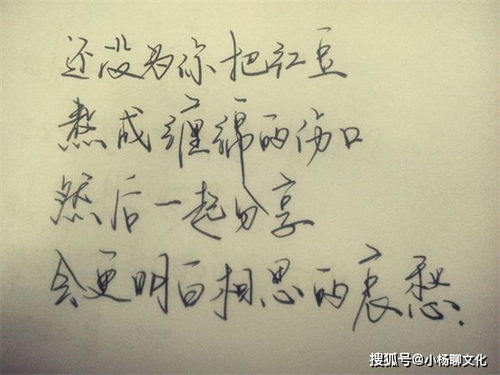 还没为你把红豆
熬成缠绵的伤口
然后一起分享
会更明白相思的哀愁.
搜狐号@小杨聊文化